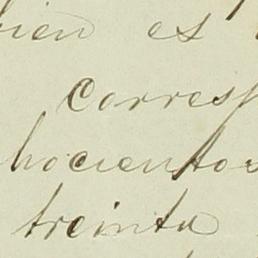 bien es
corresp
hocientos
treinta